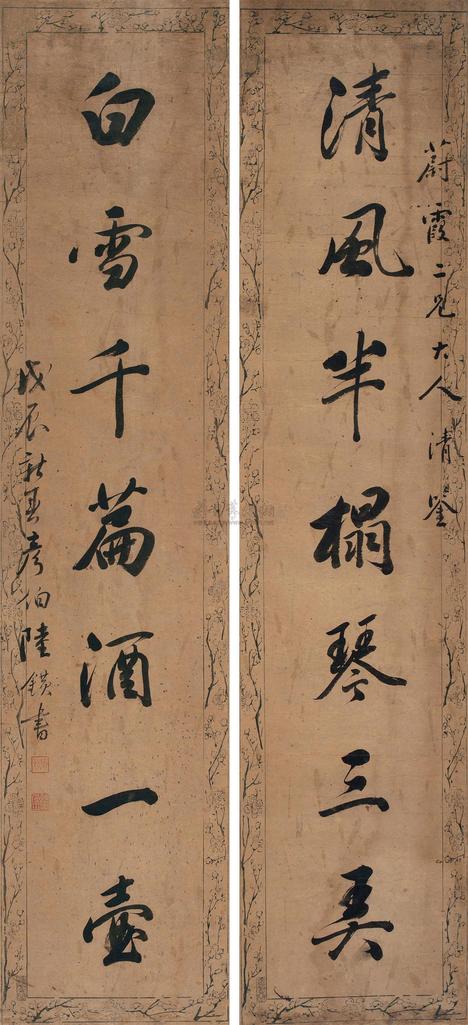 蔚霞二兄大人清鉴
清風半榻琴三弄
白雪千篇酒一壷
戊辰新春彦伯陸鐄書